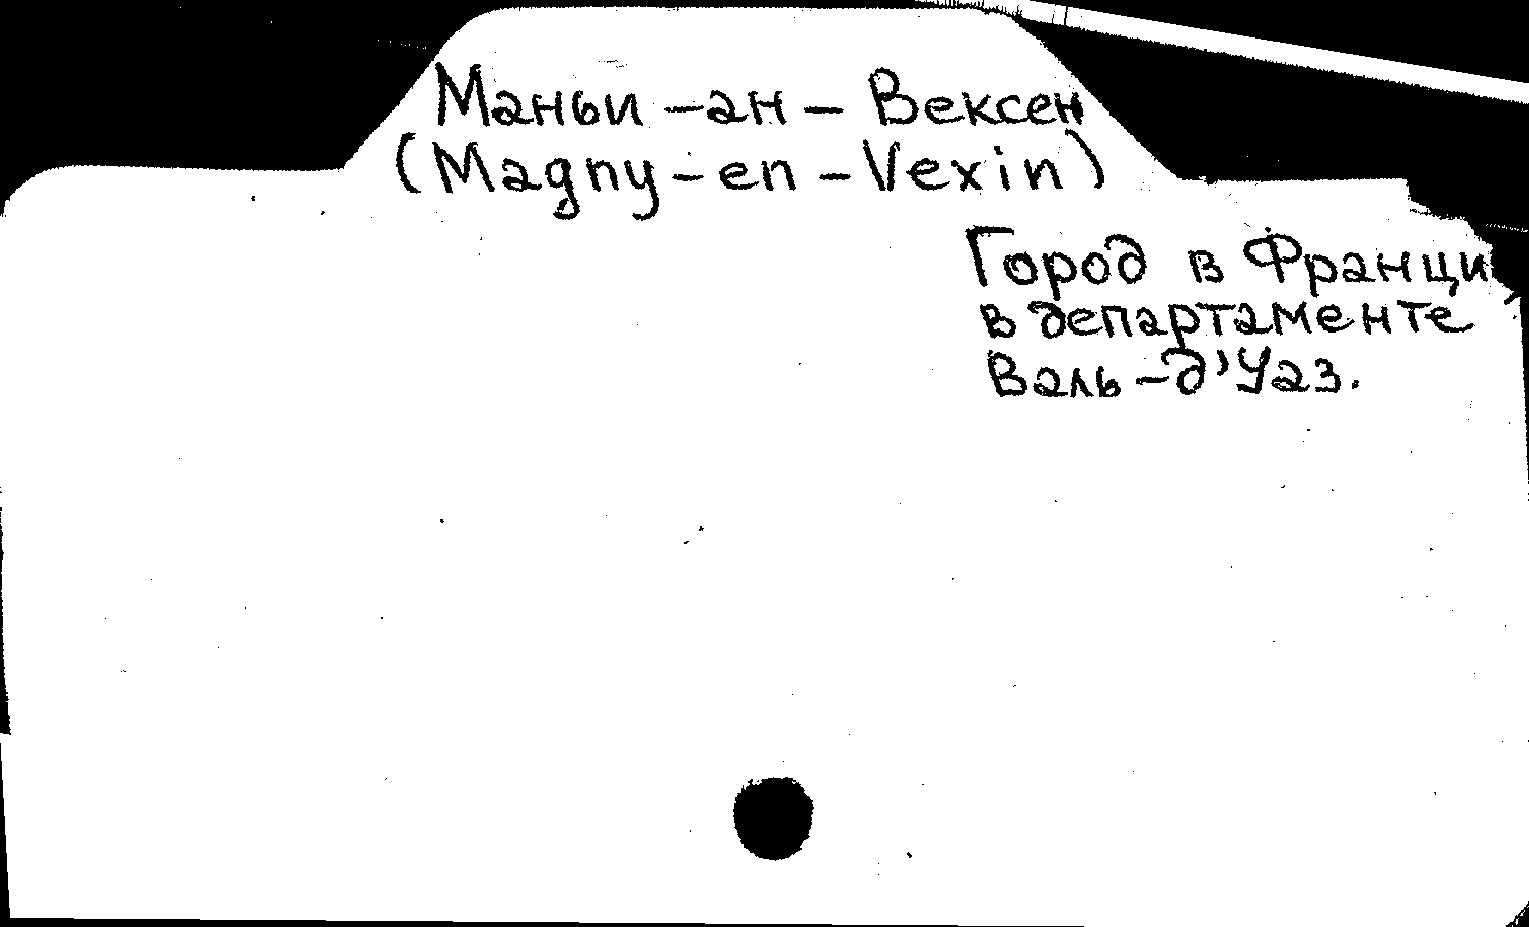 Маньи-ан-Вексен
(Magny-en-Vexin)
Город в Франци
в департаменте
Валь-д'Уаз.